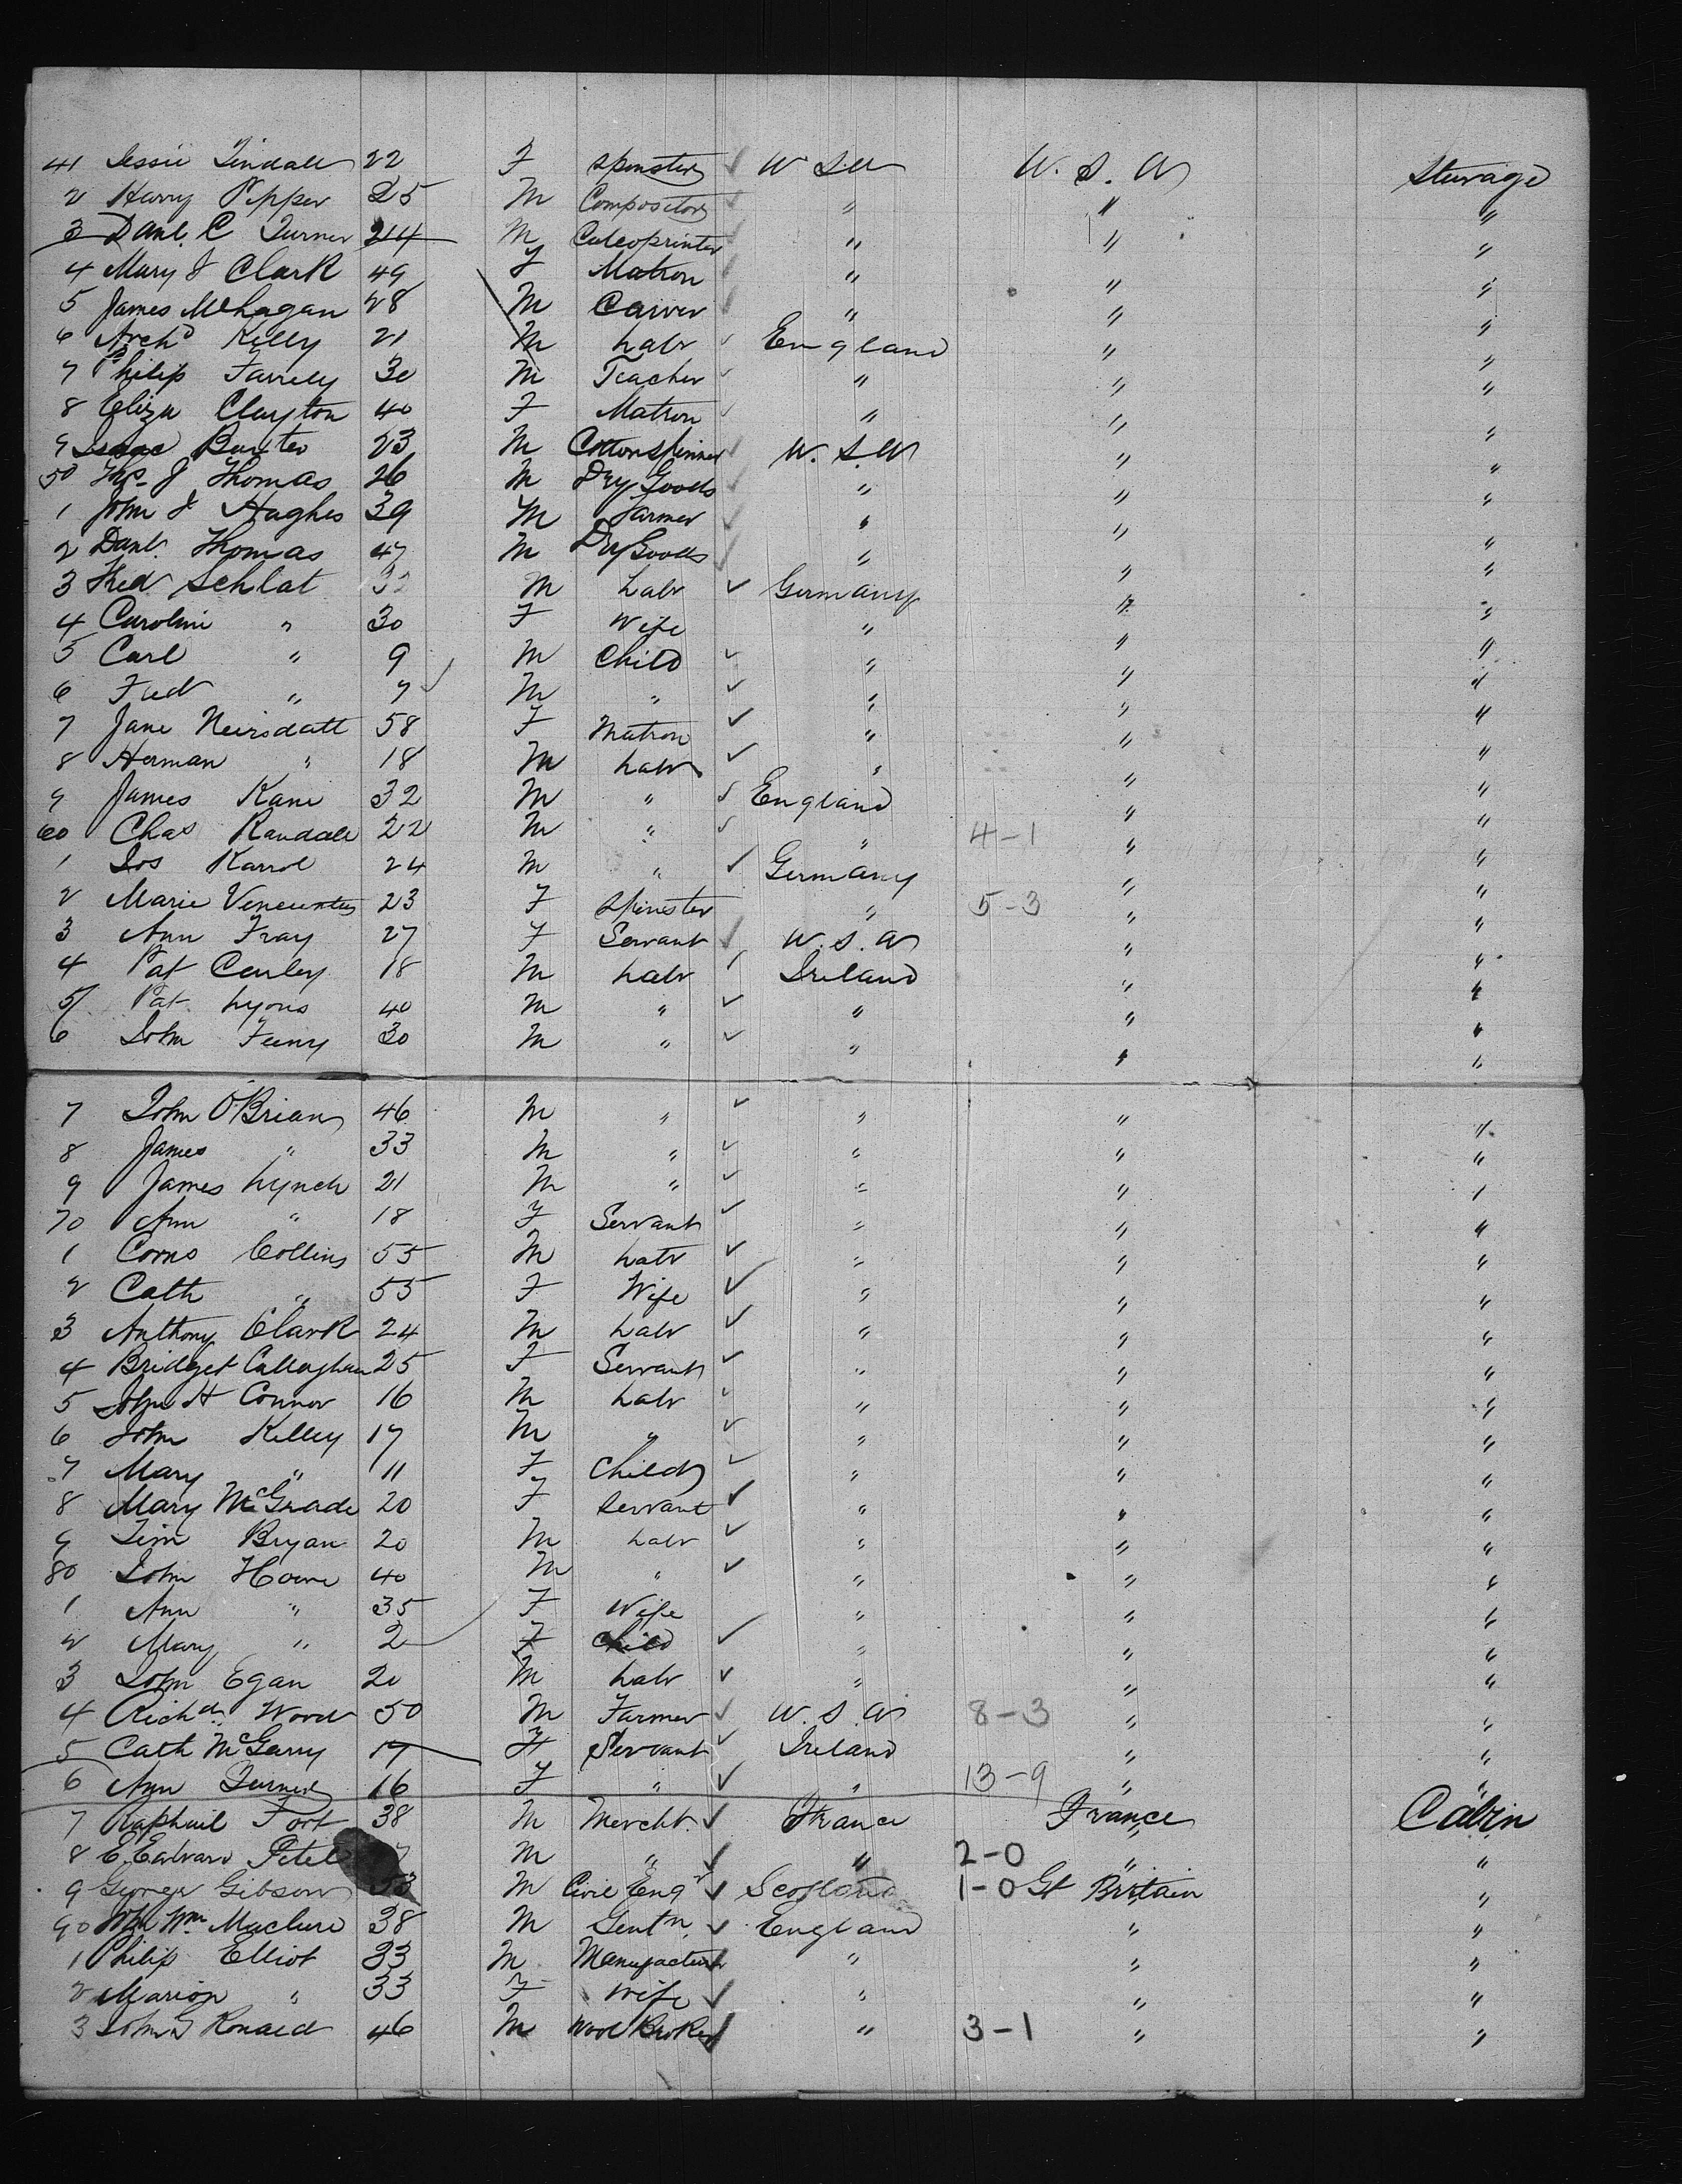 41 Jessie Tindall 22 F Spinster ✓ U.S.A U.S.A Steerage
2 Harry Pepper 25 M Compositor ✓ " " "
3 Danl. C Turner 24 M Calcoprinter " " "
4 Mary J Clark 49 F Matron " " "
5 James McLagan 28 M Carver " " "
6 Archd Kelly 21 M Labr ✓ England " "
7 Philip Farrely 30 M Teacher ✓ " " "
8 Eliza Clayton 40 F Matron ✓ " " "
9 Isaac 23 M Cottonspinner U.S.A " "
50 Thos J Thomas 26 M Dry Goods ✓ " " "
1 John J Hughes 39 M Farmer ✓ " " "
2 Danl. Thomas 47 M Dry Goods ✓ " " "
3 Fred Schlat M Labr ✓ Germany " "
4 Caroline " 30 F Wife " " "
5 Carl " 9 M Child ✓ " " "
6 Fred " 7 M " ✓ " " "
7 Jane 58 F Matron ✓ " " "
8 Herman " 18 M Labr ✓ " " "
9 James Kane 32 M " ✓ England " "
60 Chas Randall 22 M " ✓ " 4-1 " "
1 Jos Karrol 24 M " ✓ Germany " "
2 Marie 23 F Spinster " 5-3 " "
3 Ann Fray 27 F Servant ✓ U.S.A " "
4 Pat Conley 18 M Labr ✓ Ireland " "
5 Pat Lyons 40 M " ✓ " " "
6 John Feeny 30 M " ✓ " " "
7 John O'Brian 46 M " ✓ " " "
8 James " 33 M " ✓ " " "
9 James Lynch 21 M " ✓ " " "
70 Ann " 18 F Servant ✓ " " "
1 Corns Collins 55 M Labr ✓ " " "
2 Cath " 55 F Wife ✓ " " "
3 Anthony Clark 24 M Labr ✓ " " "
4 Bridget Callaghan 25 F Servant ✓ " " "
5 John H Connor 16 M Labr ✓ " " "
6 John Kelley 17 M " ✓ " " "
7 Mary " 11 F Child ✓ " " "
8 Mary McGrade 20 F Servant ✓ " " "
9 Tim Bryan 20 M Labr ✓ " " "
80 John Howe 40 M " ✓ " " "
1 Ann " 35 F Wife " " "
2 Mary " 2 F Child ✓ " " "
3 John Egan 20 M Labr ✓ " " "
4 Richd. Wood 50 M Farmer ✓ U.S.A 8-3 " "
5 Cath McGarry 17 F Servant ✓ Ireland " "
6 Ann Turner 16 F " ✓ " 13-9 " "
7 Raphael Fort 38 M Mercht. ✓ France France Cabin
8 E. Edward M " ✓ " 2-0 " "
9 George Gibson 53 M Civil Engr ✓ Scotland 1-0 Gt Britain "
90 Wm Maclure 38 M Gentn. ✓ England " "
1 Philip Elliot 33 M Manufacturer ✓ " " "
2 Marion " 33 F Wife ✓ " " "
3 John G Ronald 46 M Wool Broker ✓ " 3-1 " "